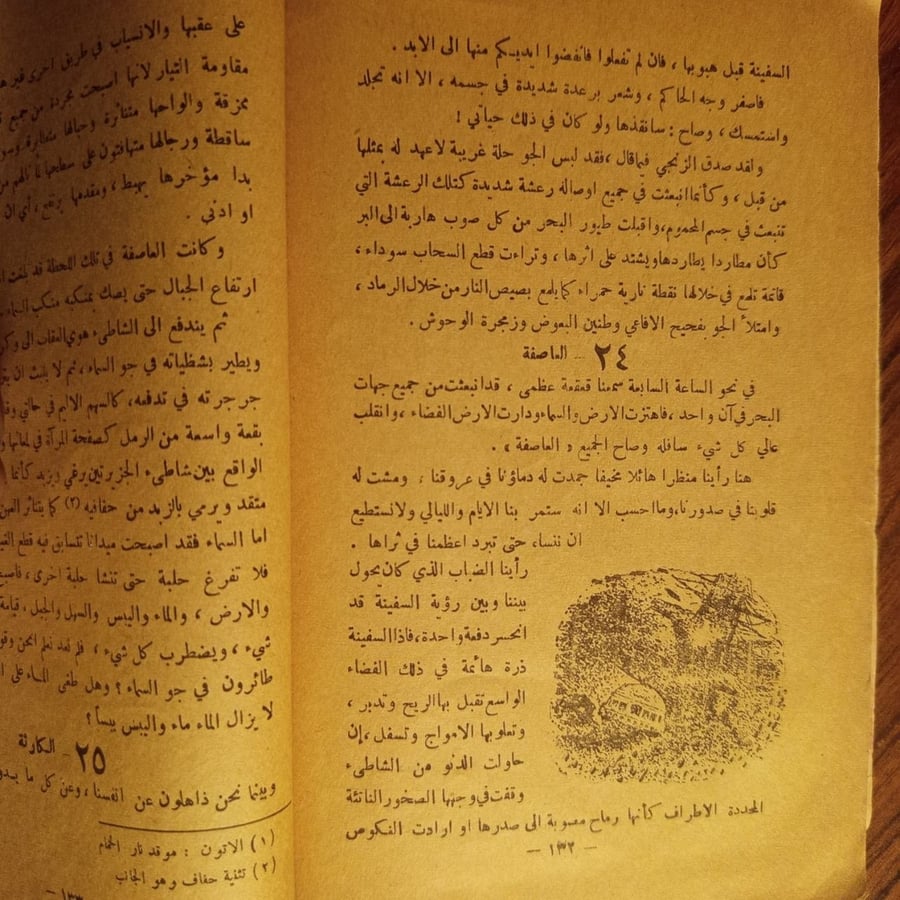 السفينة قبل هبوبها ، فان لم تفعلوا فانفضوا ايديكم منها الى الابد .
فاصفر وجه الحاكم ، وشعر برعدة شديدة في جسمه ، الا انه تجلد
واستمسك ، وصاح : سانقذها ولو كان في ذلك حياتي !
ولقد صدق الزنجي فيما قال ، فقد لبس الجو حلة غريبة لا عهد له بمثلها
من قبل ، وكأنما انبعثت في جميع اوصاله رعشة شديدة كتلك الرعشة التي
تنبعث في جسم المحموم، واقبلت طيور البحر من كل صوب هاربة الى البر
كأن مطاردا يطاردها ويشتد على اثرها ، وتراءت قطع السحاب سوداء ،
قاتمة تلمع في خلالها نقطة نارية حمراء كما يلمع بصيص النار من خلال الرماد ،
وامتلأ الجو بفحيح الافاعي وطنين البعوض وزمجرة الوحوش .
٢٤ – العاصفة
في نحو الساعة السابعة سمعنا قعقعة عظمى ، قد انبعثت من جميع جهات
البحر في آن واحد ، فاهتزت الارض والسماء ودارت الارض الفضاء ، وانقلب
عالي كل شيء سافله وصاح الجميع « العاصفة » .
هنا رأينا منظرا هائلا مخيفا جمدت له دماؤنا في عروقنا ، ومشت له
قلوبنا في صدورنا، وما احسب الا انه ستمر بنا الايام والليالي ولا نستطيع
ان ننساه حتى تبرد اعظمنا في ثراها .
رأينا الضباب الذي كان يحول
بيننا وبين رؤية السفينة قد
انحسر دفعة واحدة، فاذا السفينة
ذرة هائمة في ذلك الفضاء
الواسع تقبل بها الريح وتدبر ،
وتعلو بها الامواج وتسفل ، إن
حاولت الدنو من الشاطىء
وقفت في وجهها الصخور الناتئة
المحددة الاطراف كأنها رماح مصوبة الى صدرها او ارادت النكوص
– ١٣٢ –
على عقبها والانسياب في طريق اخرى غير
مقاومة التيار لانها اصبحت مجردة من جميع
ممزقة والواحها متناثرة وحبالها متطايرة
ساقطة ورجالها متهافتون على سطحها
بدا مؤخرها يهبط ، ومقدمها يرتفع ، اي ان
او ادنى .
وكانت العاصفة في تلك اللحظة قد بلغت
ارتفاع الجبال حتى يصك بمنكبه منكب السماء
ثم يندفع الى الشاطىء هوي العقاب الى
ويطير بشظياته في جو السماء ، ثم لا يلبث ان
جرجرته في تدفعه، كالسهم الاليم في
بقعة واسعة من الرمل كصفحة المرآة في لمعانها
الواقع بين شاطىء الجزيرتين يرغي ويزبد كأنما
متقد ويرمي بالزبد من حفافيه (٢) كما يتناثر
اما السماء فقد اصبحت ميدانا تتسابق فيه قطع
فلا تفرغ حلبة حتى تنشا حلبة اخرى ،
والارض ، والماء واليبس والسهل والجبل ،
شيء ، ويضطرب كل شيء ، فلم نعد نعلم انحن
طائرون في جو السماء ؟ وهل طغى الماء على
لا يزال الماء ماء واليبس يبسا ؟
٢٥ – الكارثة
وبينما نحن ذاهلون عن انفسنا ، وعن كل ما
(١) الاتون : موقد نار الحمام
(٢) تثنية حفاف وهو الجانب